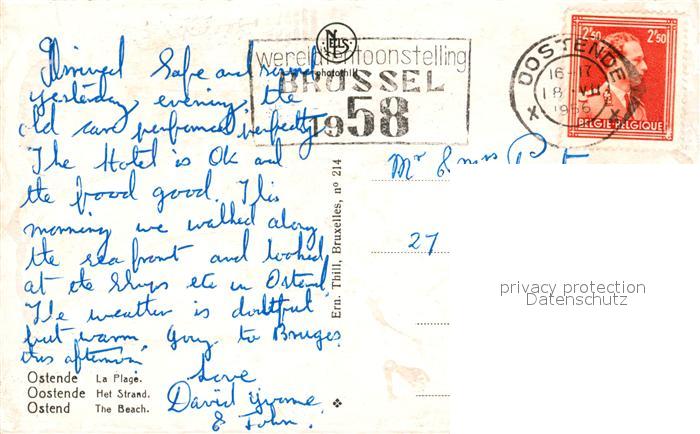 Arrived Safe and sound
yesterday evening, the
old car performed perfectly
The Hotel is OK and
the food good. This
morning we walked along
the sea front and looked
at the shops etc in Ostend,
The weather is doubtful
but warm. Going to Bruges
this afternoon
Love
David Yvonne
& John.
Ostende La Plage.
Oostende Het Strand.
Ostend The Beach.
NELS
photothill
wereldtentoonstelling
BRUSSEL
1958
Ern. Thill, Bruxelles, nº 214
OOSTENDE
16-17
18 VII
1956
X X
2F50 2F50
BELGIE-BELGIQUE
Mr & Mrs
27
privacy protection
Datenschutz